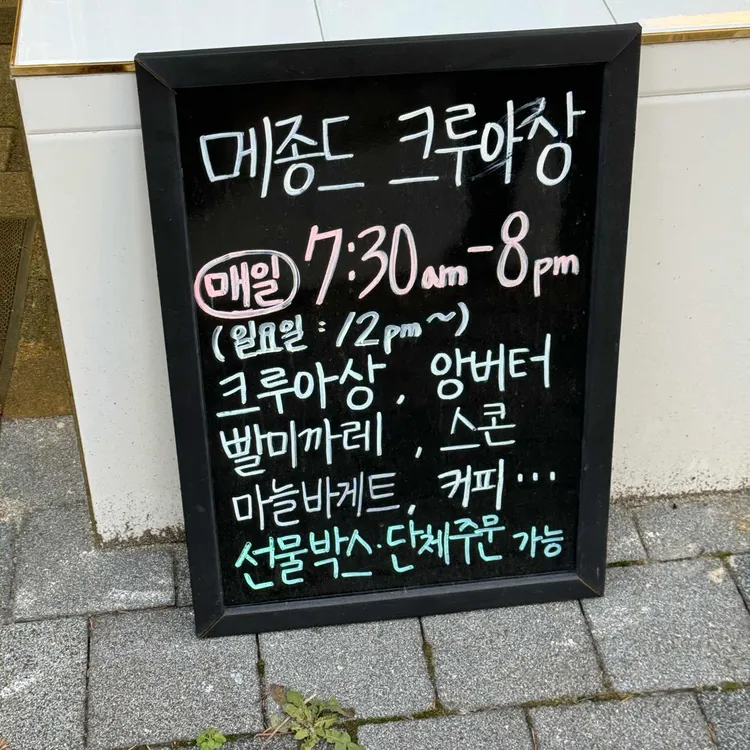 메종드 크루아상
매일 7:30am-8pm
(일요일 : 12pm~)
크루아상, 앙버터
빨미까레, 스콘
마늘바게트, 커피...
선물박스·단체주문 가능